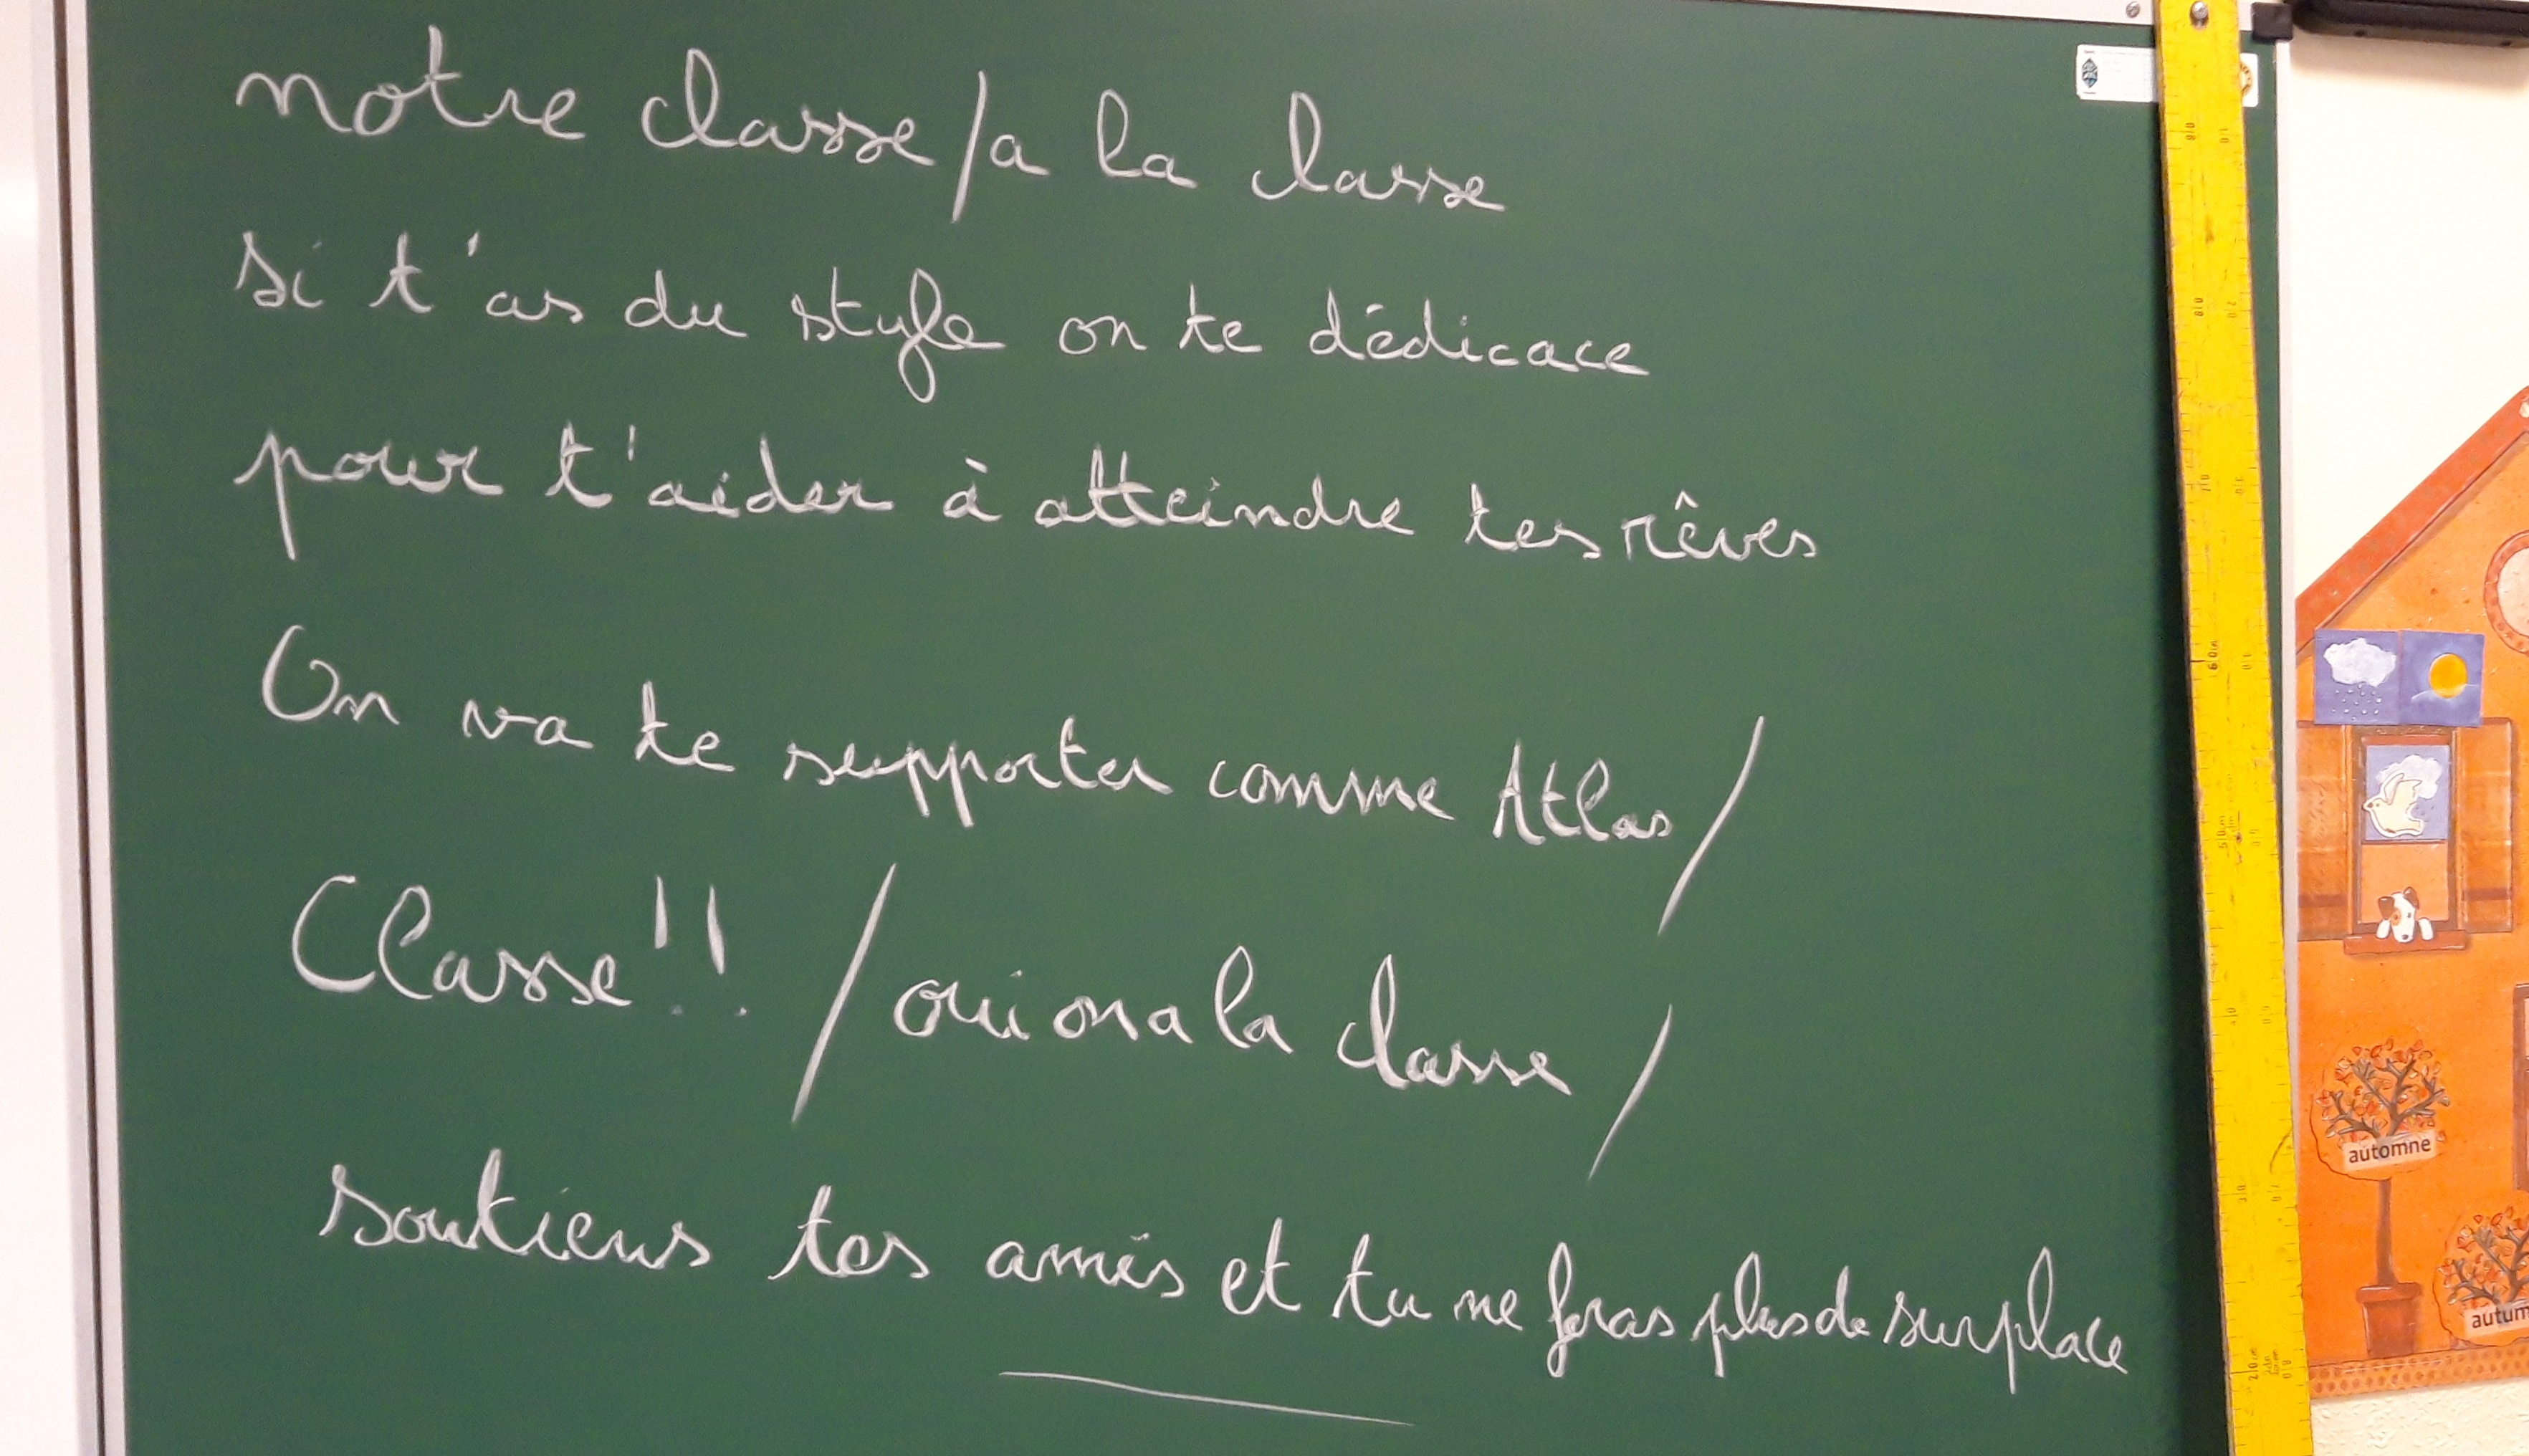 notre classe / a la classe
si t'as du style on te dédicace
pour t'aider à atteindre tes rêves
On va te supporter comme Atlas /
Classe !! / oui on a la classe /
soutiens tes amis et tu ne feras plus de surplace
automne